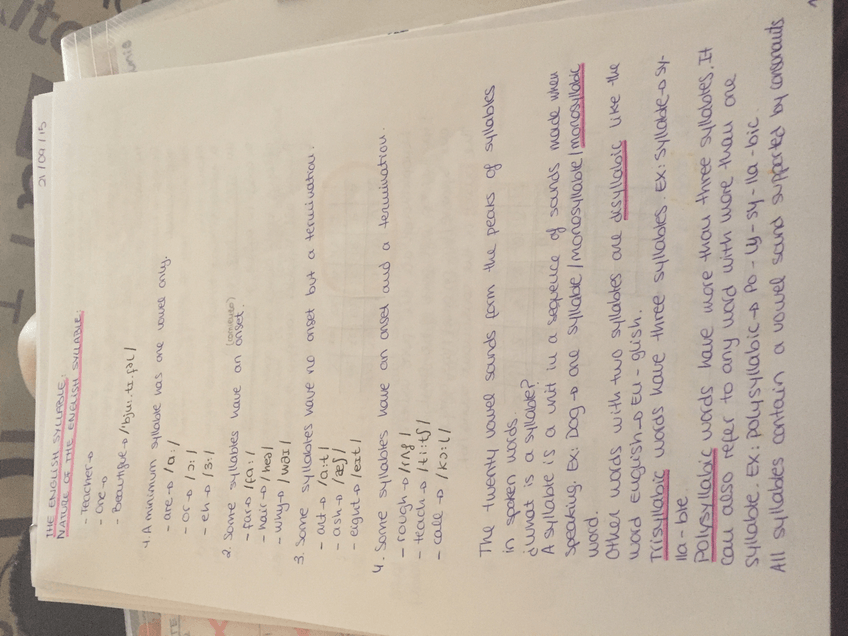 21/09/15
THE ENGLISH SYLLABLE:
NATURE OF THE ENGLISH SYLLABLE:
- Teacher→
- one→
- Beautiful→/'bjuː.tɪ.fəl/
1. A minimum syllable has one vowel only.
- are→/ɑː/
- or→/ɔː/
- eh→/ɜː/
2. Some syllables have an onset. (consonant)
- far→/fɑː/
- hair→/heə/
- why→/waɪ/
3. Some syllables have no onset but a termination.
- art→/ɑːt/
- ash→/æʃ/
- eight→/eɪt/
4. Some syllables have an onset and a termination.
- rough→/rʌf/
- teach→/tiːtʃ/
- call→/kɔːl/
The twenty vowel sounds form the peaks of syllables
in spoken words.
¿What is a syllable?
A syllable is a unit in a sequence of sounds made when
speaking. Ex: Dog→ one syllable/monosyllable/monosyllabic
word.
Other words with two syllables are disyllabic like the
word english→ Eu-glish.
Trisyllabic words have three syllables. Ex: Syllable→ Sy-
lla-ble.
Polysyllabic words have more than three syllables. It
can also refer to any word with more than one
syllable. Ex: polysyllabic→ Po-ly-sy-lla-bic.
All syllables contain a vowel sound supported by consonants